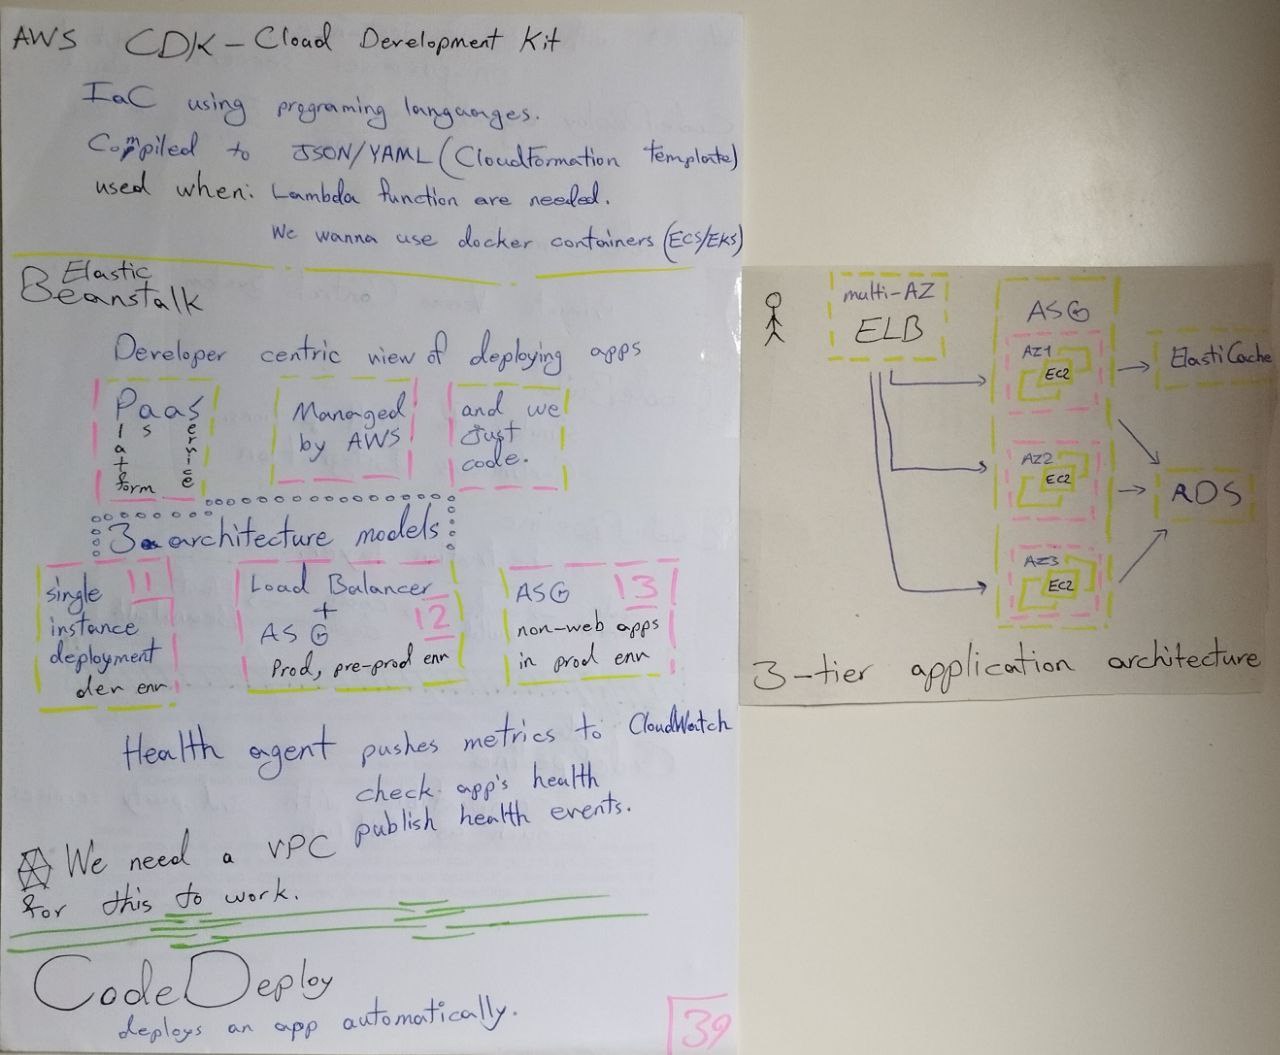 AWS CDK - Cloud Development Kit
IaC using programing languages.
Compiled to JSON/YAML (CloudFormation template)
used when: Lambda function are needed.
We wanna use docker containers (ECS/EKS)
Elastic
Beanstalk
Developer centric view of deploying apps
PaaS
Platform
as
Service
Managed
by AWS
and we
Just
code.
3 architecture models
single
instance
deployment
dev env
1
Load Balancer
+
ASG
2
Prod, pre-prod env
ASG
3
non-web apps
in prod env
Health agent pushes metrics to CloudWatch
check app's health
publish health events.
We need a VPC
for this to work.
CodeDeploy
deploys an app automatically.
39
multi-AZ
ELB
ASG
AZ1
EC2
AZ2
EC2
AZ3
EC2
ElastiCache
RDS
3-tier application architecture